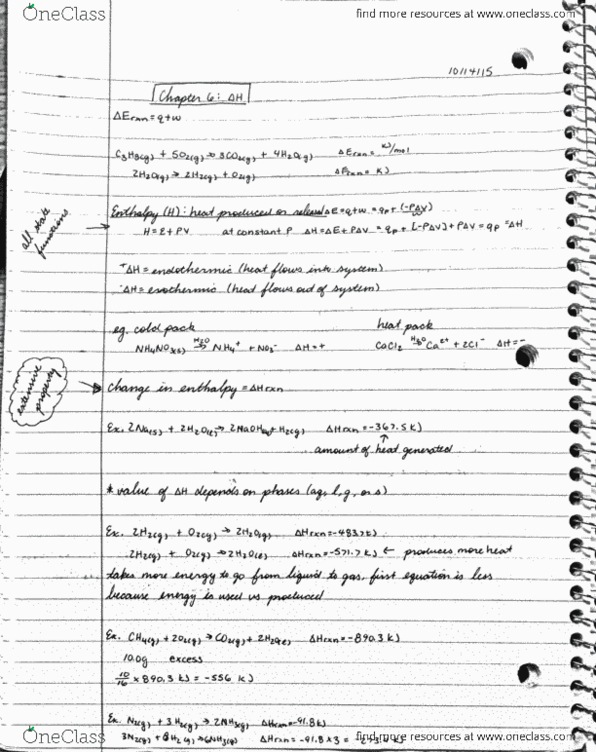 OneClass
find more resources at www.oneclass.com
10/14/15
Chapter 6: ΔH
ΔErxn = q+w
C3H8(g) + 5O2(g) → 3CO2(g) + 4H2O(g) ΔErxn = KJ/mol
2H2O(g) → 2H2(g) + O2(g) ΔErxn = KJ
all state functions
Enthalpy (H): heat produced or released ΔE = q+w = qp + (-PΔV)
H = E + PV at constant P ΔH = ΔE + PΔV = qp + [-PΔV] + PΔV = qp = ΔH
+ΔH = endothermic (heat flows into system)
-ΔH = exothermic (heat flows out of system)
eg. cold pack heat pack
NH4NO3(s) H2O→ NH4+ + NO3- ΔH = + CaCl2 H2O→ Ca2+ + 2Cl- ΔH = -
extensive property
change in enthalpy = ΔHrxn
Ex. 2Na(s) + 2H2O(l) → 2NaOH(aq) + H2(g) ΔHrxn = -367.5 KJ
↑
amount of heat generated
* value of ΔH depends on phases (aq, l, g, or s)
Ex. 2H2(g) + O2(g) → 2H2O(g) ΔHrxn = -483.7 KJ
2H2(g) + O2(g) → 2H2O(l) ΔHrxn = -571.7 KJ ← produces more heat
takes more energy to go from liquid to gas, first equation is less
because energy is used vs produced
Ex. CH4(g) + 2O2(g) → CO2(g) + 2H2O(l) ΔHrxn = -890.3 KJ
10.0g excess
10/16 × 890.3 KJ = -556 KJ
Ex. N2(g) + 3H2(g) → 2NH3(g) ΔHrxn = -91.8 KJ
3N2(g) + H2(g) → 6NH3(g) ΔHrxn = -91.8 × 3 =
OneClass
find more resources at www.oneclass.com